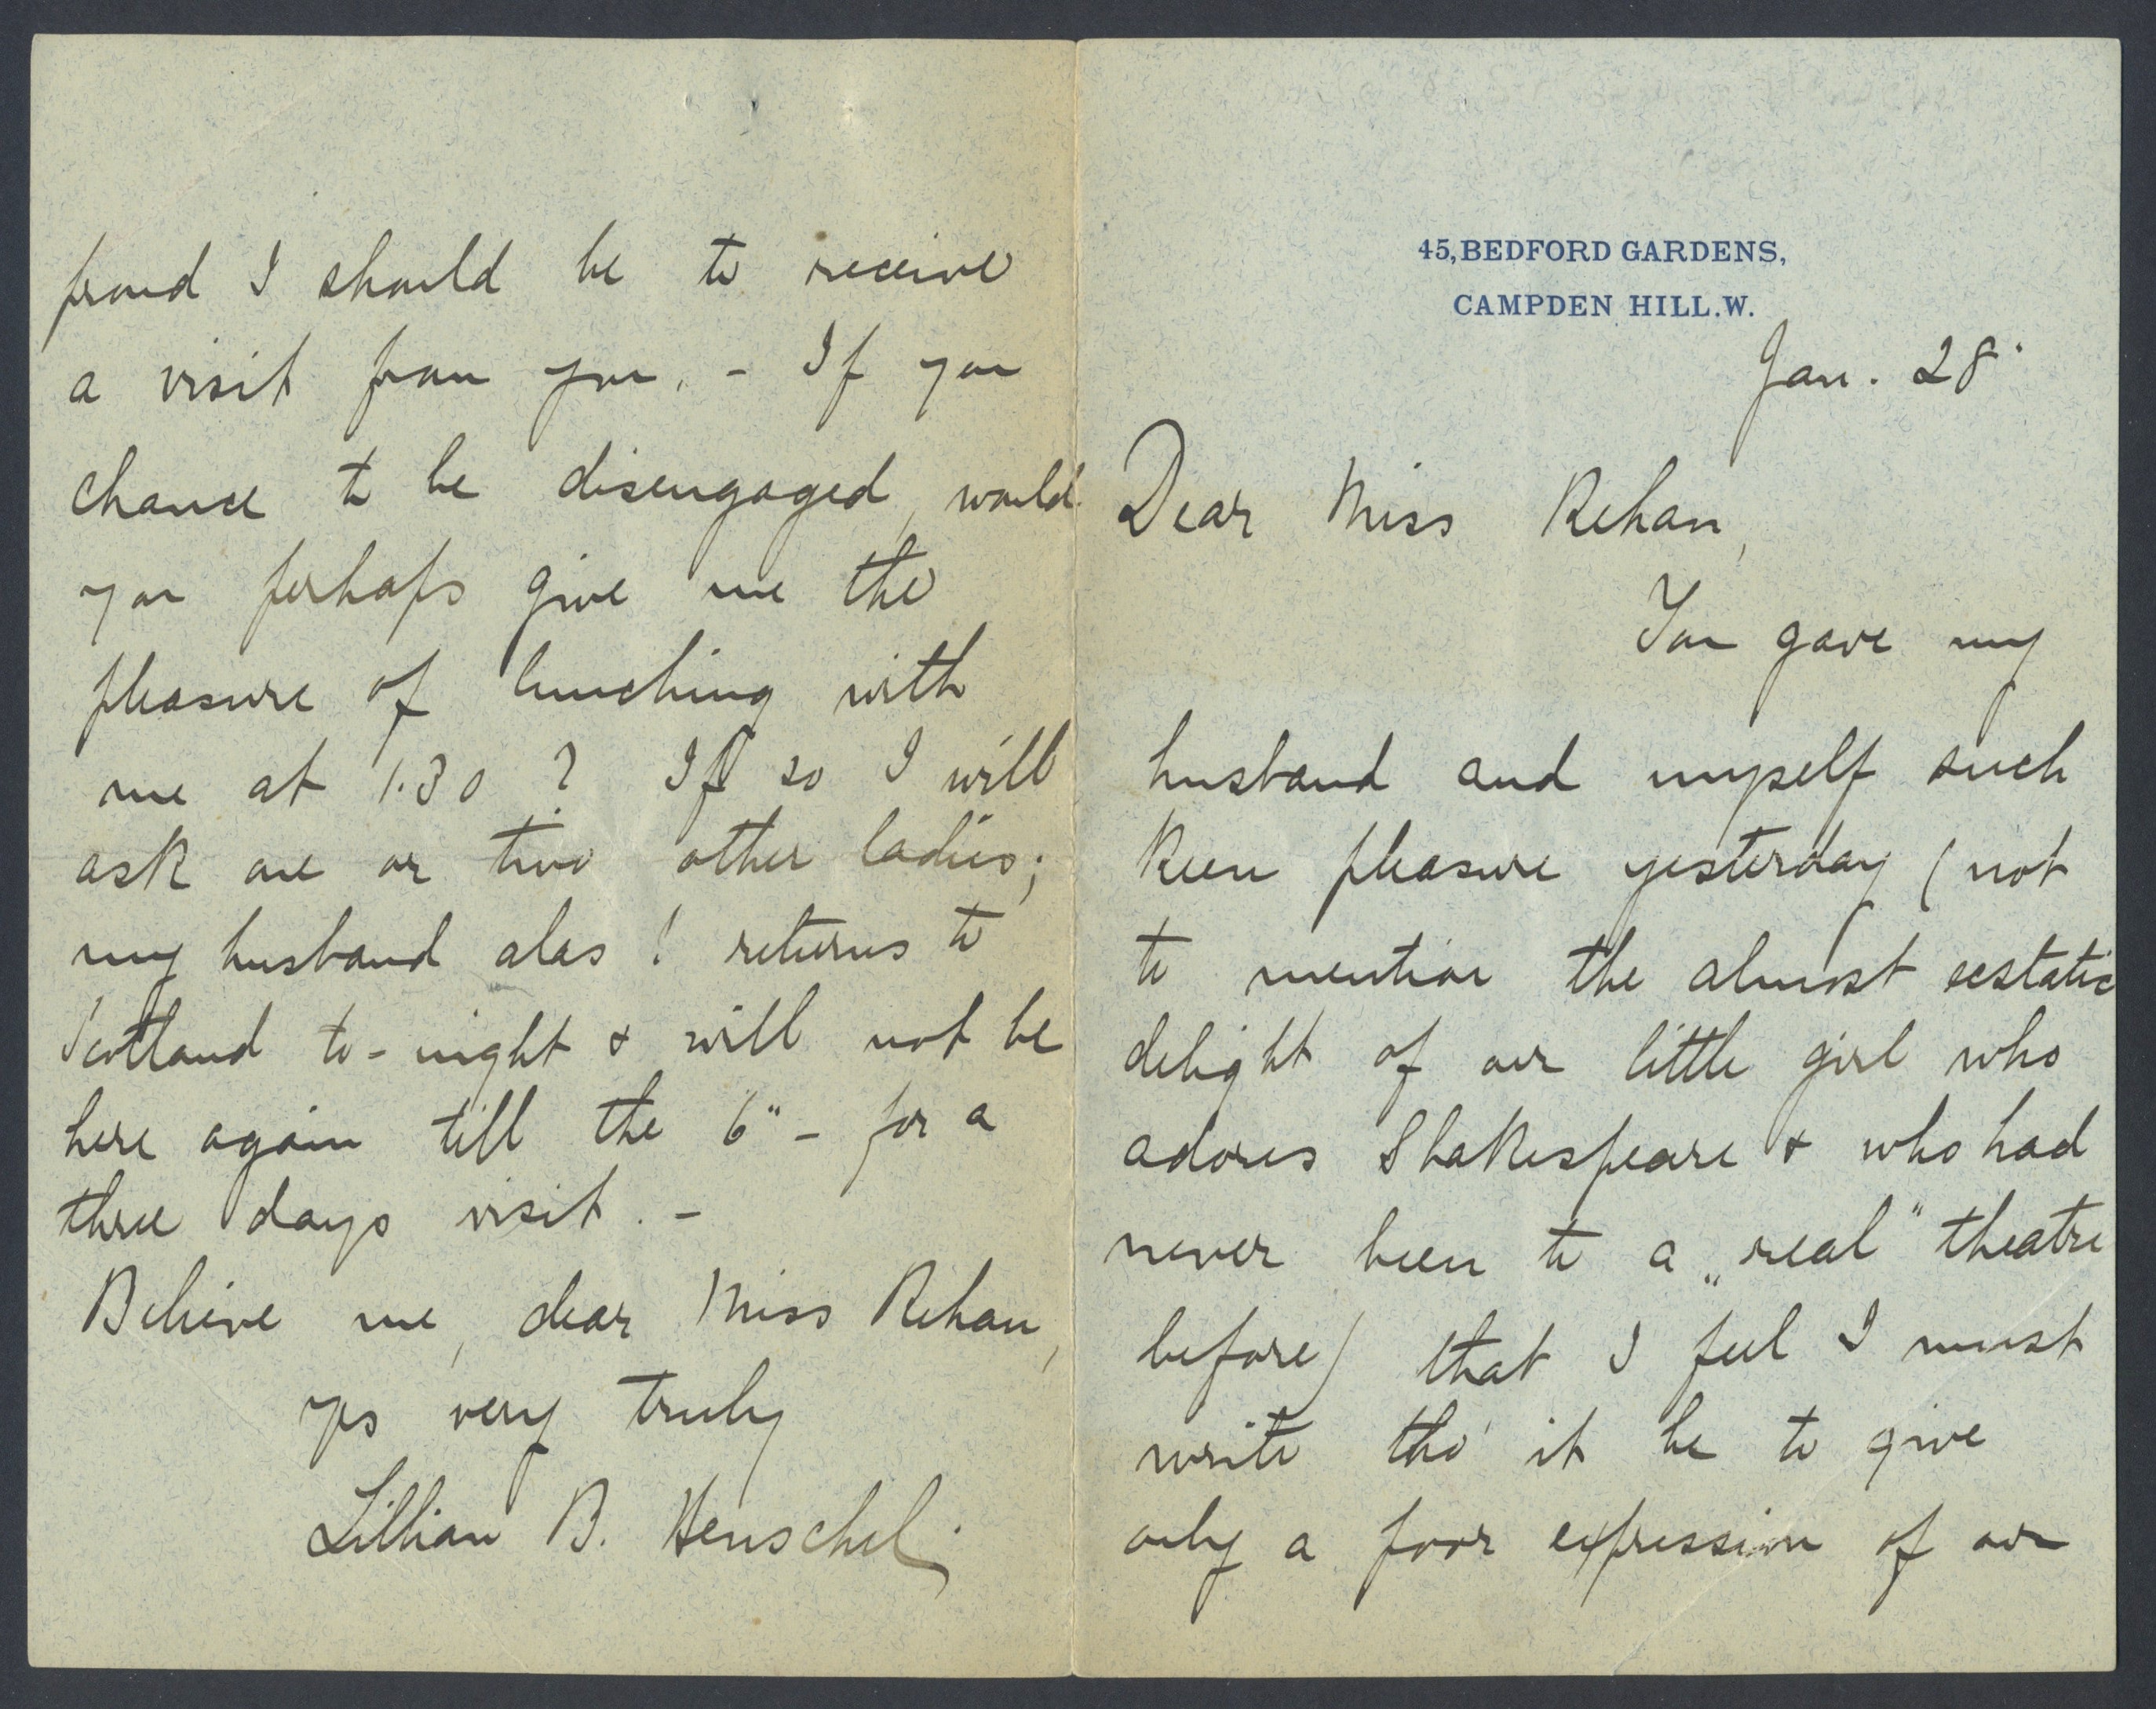 45, BEDFORD GARDENS,
CAMPDEN HILL. W.
Jan. 28.
Dear Miss Rehan,
You gave my
husband and myself such
keen pleasure yesterday (not
to mention the almost ecstatic
delight of our little girl who
adores Shakespeare & who had
never been to a „real" theatre
before) that I feel I must
write tho' it be to give
only a poor expression of our
proud I should be to receive
a visit from you. - If you
chance to be disengaged, would
you perhaps give me the
pleasure of lunching with
me at 1.30? If so I will
ask one or two other ladies;
my husband alas! returns to
Scotland to-night & will not be
here again till the 6" - for a
three days visit. -
Believe me, dear Miss Rehan,
yrs very truly
Lillian B. Henschel.